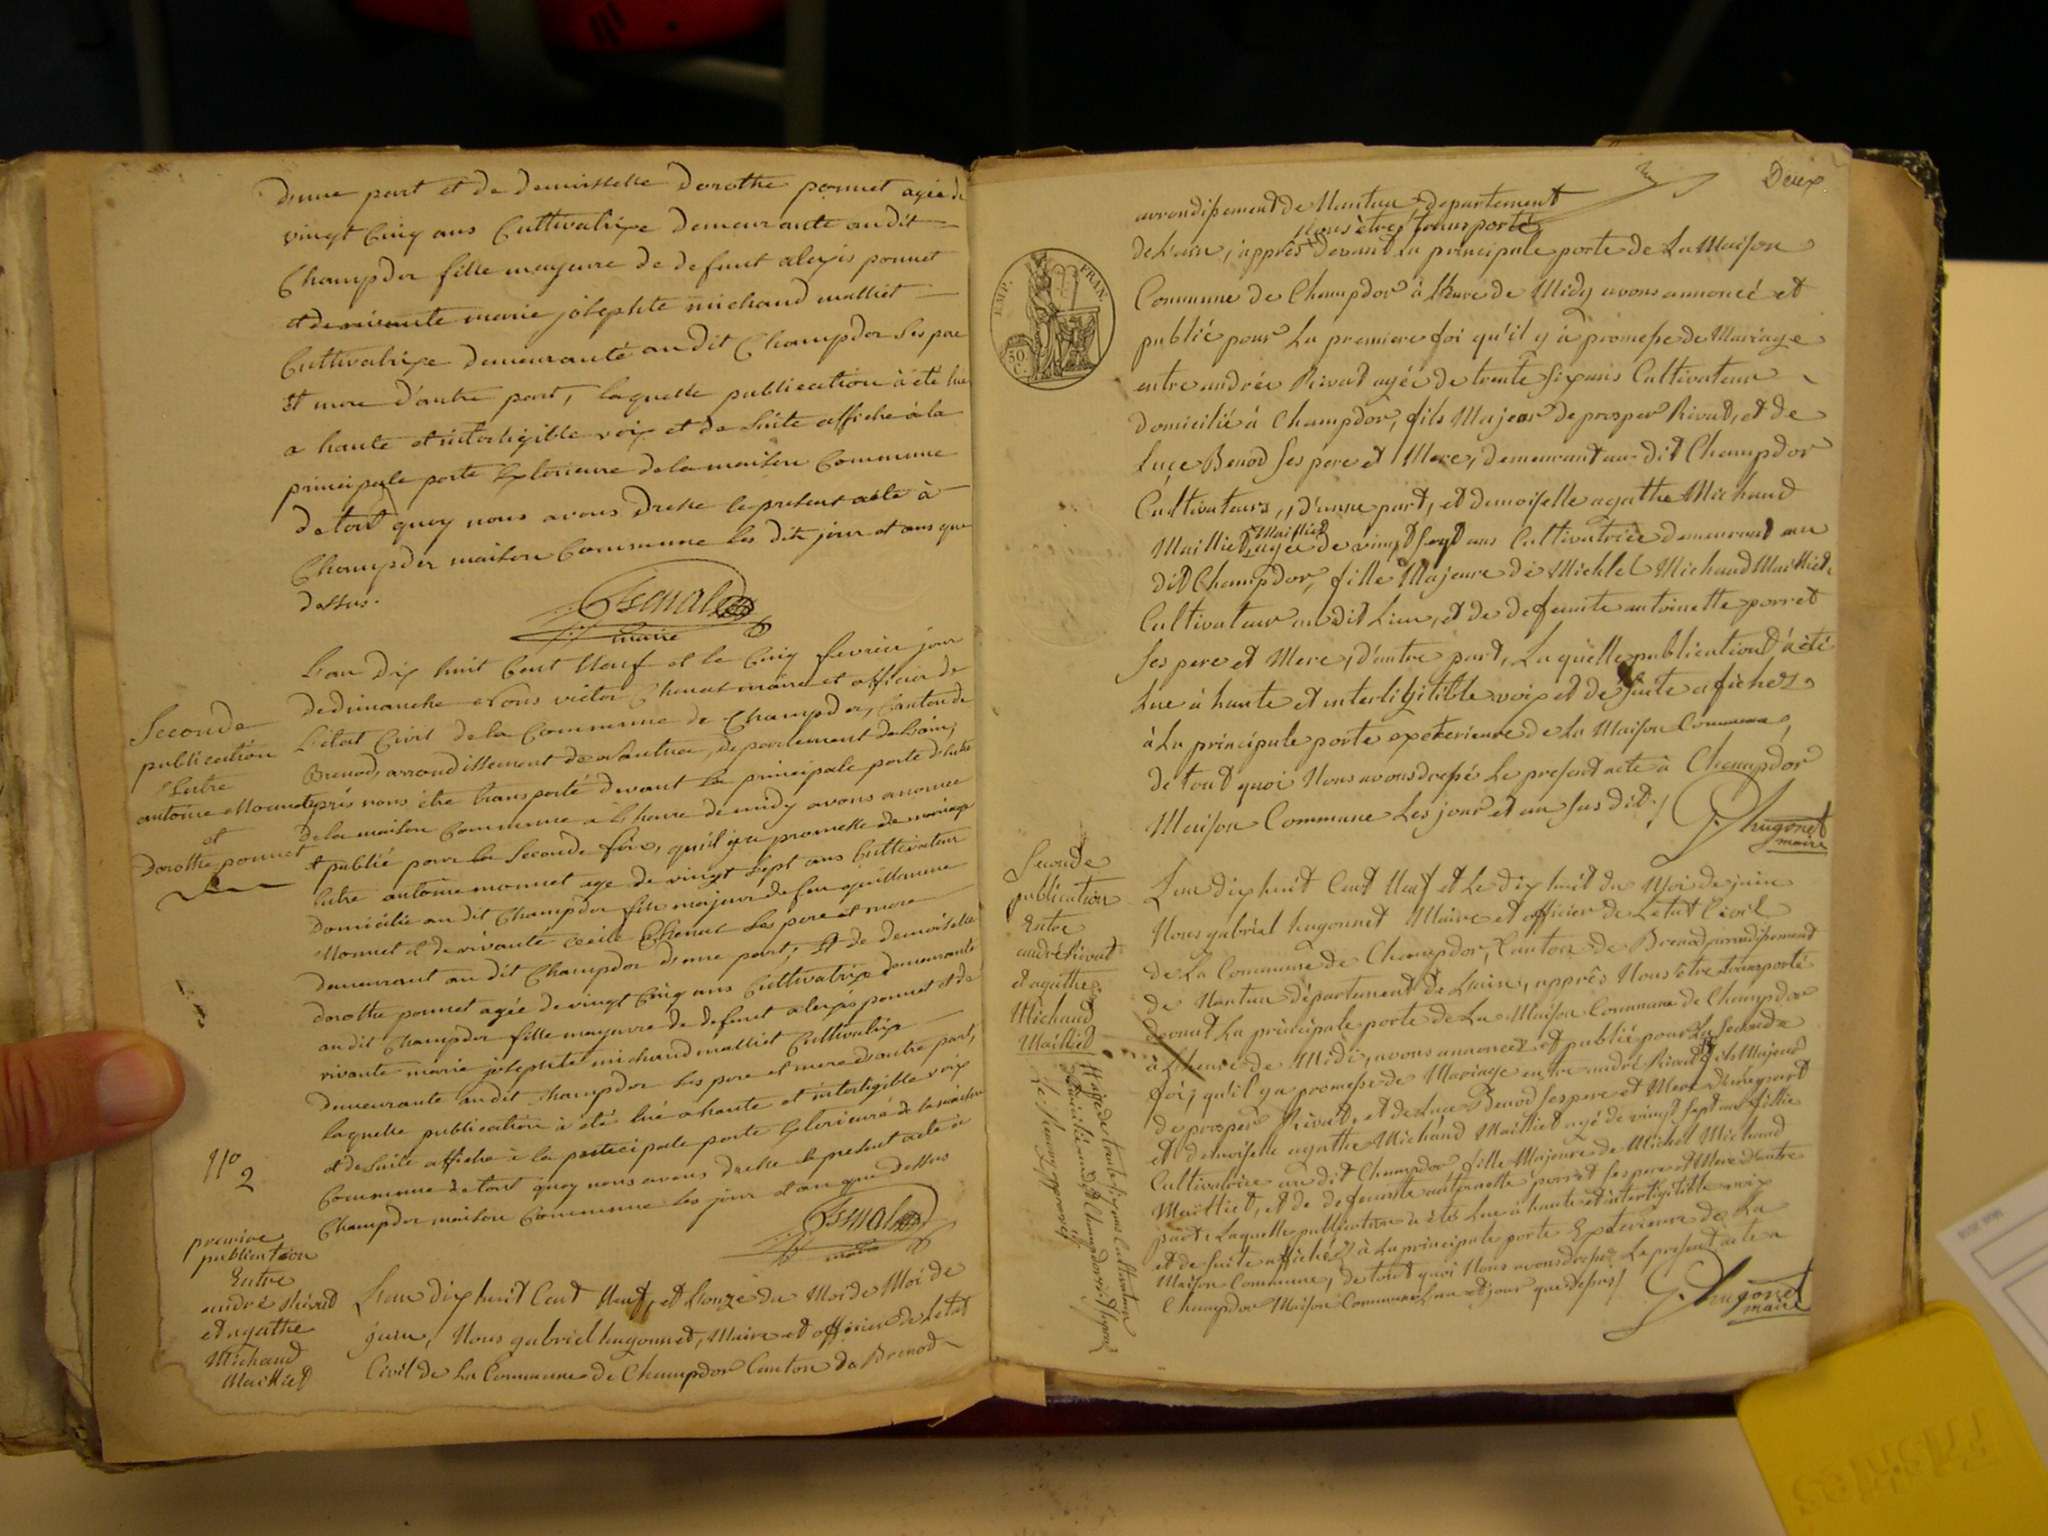 d'une part et de demoisselle dorothe ponnet agée de
vingt cinq ans Cultivatrixe demeurante au dit
Champdor fille mayeure de defunt alexis ponnet
et de vivante marie josephte michaud malliet
Cultivatrixe demeurante au dit Champdor ses pere
et mere d'autre part, laquelle publication à été lue
a haute et interligible voix et de suite affiche à la
principale porte Exterieure de la maison Commune
de tout quoy nous avons dresse le present acte à
Champdor maison Commune les dits jour et ans que
dessus.
maire
Seconde
publication
Entre
antoine Monnet
et
Dorothe ponnet
L'an dix huit Cent Neuf et le Cinq fevrier jour
de dimanche Nous victor Chenat maire et officier de
l'etat Civil de la Commune de Champdor, Canton de
Brenod, arrondissement de Nantua, departement de Lain,
après nous être transporté devant la principale porte d'entre
de la maison Commune à l'heure de midy avons anonce
et publié pour la Seconde fois, qu'il y a promesse de mariage
Entre antoine monnet age de vingt Sept ans Cultivateur
Domicilie au dit Champdor fils majeur de feu guillaume
Monnet et de vivante cecile Chenat ses pere et mere
demeurant au dit Champdor d'une part, Et de demoiselle
dorothe ponnet agée de vingt Cinq ans Cultivatrixe demeurante
au dit Champdor fille mayeure de defunt alexis ponnet et de
vivante marie josephte michaud malliet Cultivatrixe
demeurante au dit Champdor ses pere et mere d'autre part,
laquelle publication à été lue a haute et interligible voix
et de Suite affiche à la principale porte Exterieure de la maison
Commune de tout quoy nous avons dresse le present acte à
Champdor maison Commune les jour et an que dessus
maire
No
2
premiere
publication
Entre
andré Rivat
et agathe
Michaud
Malliet
L'an dix huit Cent Neuf, et L'onze du Moi de Moi de
juin, Nous gabriel hugonnet, Maire et officier de Letat
Civil de La Commune de Champdor Canton de Brenod
Deux
arrondissement de Nantua departement
Nous être transporté
de L'ain, apprès devant la principale porte de La Maison
Commune de Champdor à L'heure de Midy avons annoncé et
publié pour La premiere foi qu'il y à promesse de Mariage
entre andrée Rivat agée de trente six ans Cultivateur
domicilié à Champdor, fils Majeur de prosper Rivat, et de
Luce Benod ses pere et Mere, demeurant au dit Champdor
Cultivateurs, d'unne part, et demoiselle agathe Michaud
Malliet
Malliet, agée de vingt sept ans Cultivatrice demeurant au
dit Champdor, fille Majeure de Michel Michaud Malliet
Cultivateur au dit Lieu, et de defeunte antoinette porret
ses pere et Mere, d'autre part, Laquelle publication à été
Lue à haute et interligitible voix et de suite afichez
à La principale porte exeterieure de La Maison Commune,
de tout quoi Nous avons dressé Le present acte à Champdor
Maison Commune Les jour et an sus dit.
G. hugonet
maire
EMP. FRAN.
50 C.
Seconde
publication
Entre
andré Rivat
et agathe
Michaud
Malliet
L'an dix huit Cent Neuf et Le dix huit du Moi de juin
Nous gabriel hugonnet Maire et officier de Letat Civil
de La Commune de Champdor, Canton de Brenod arrondissement
de Nantua département de Lain, apprês Nous être transporté
devant La principale porte de La Maison Commune de Champdor
à L'heure de Midi, avons annoncez et publié pour La Seconde
foi, qu'il y a promesse de Mariage entre andré Rivat fils Majeur
de prosper Rivat, et de Luce Benod ses pere et Mere d'une part
et demoiselle agathe Michaud Malliet agé de vingt sept ans fillie
Cultivatrice au dit Champdor fille Majeure de Michel Michaud
Malliet, et de defeunte antoinette porret ses pere et Mere d'autre
part, Laquelle publication a étée Lue à haute et interligitible voix
et de suite affichéz à La principale porte Exterieure de La
Maison Commune, de tout quoi Nous avons dressé Le present acte a
Champdor Maison Commune L'an et jour que dessus
G. hugonet
maire
agé de trente six ans Cultivateur
domicilié au dit Champdor